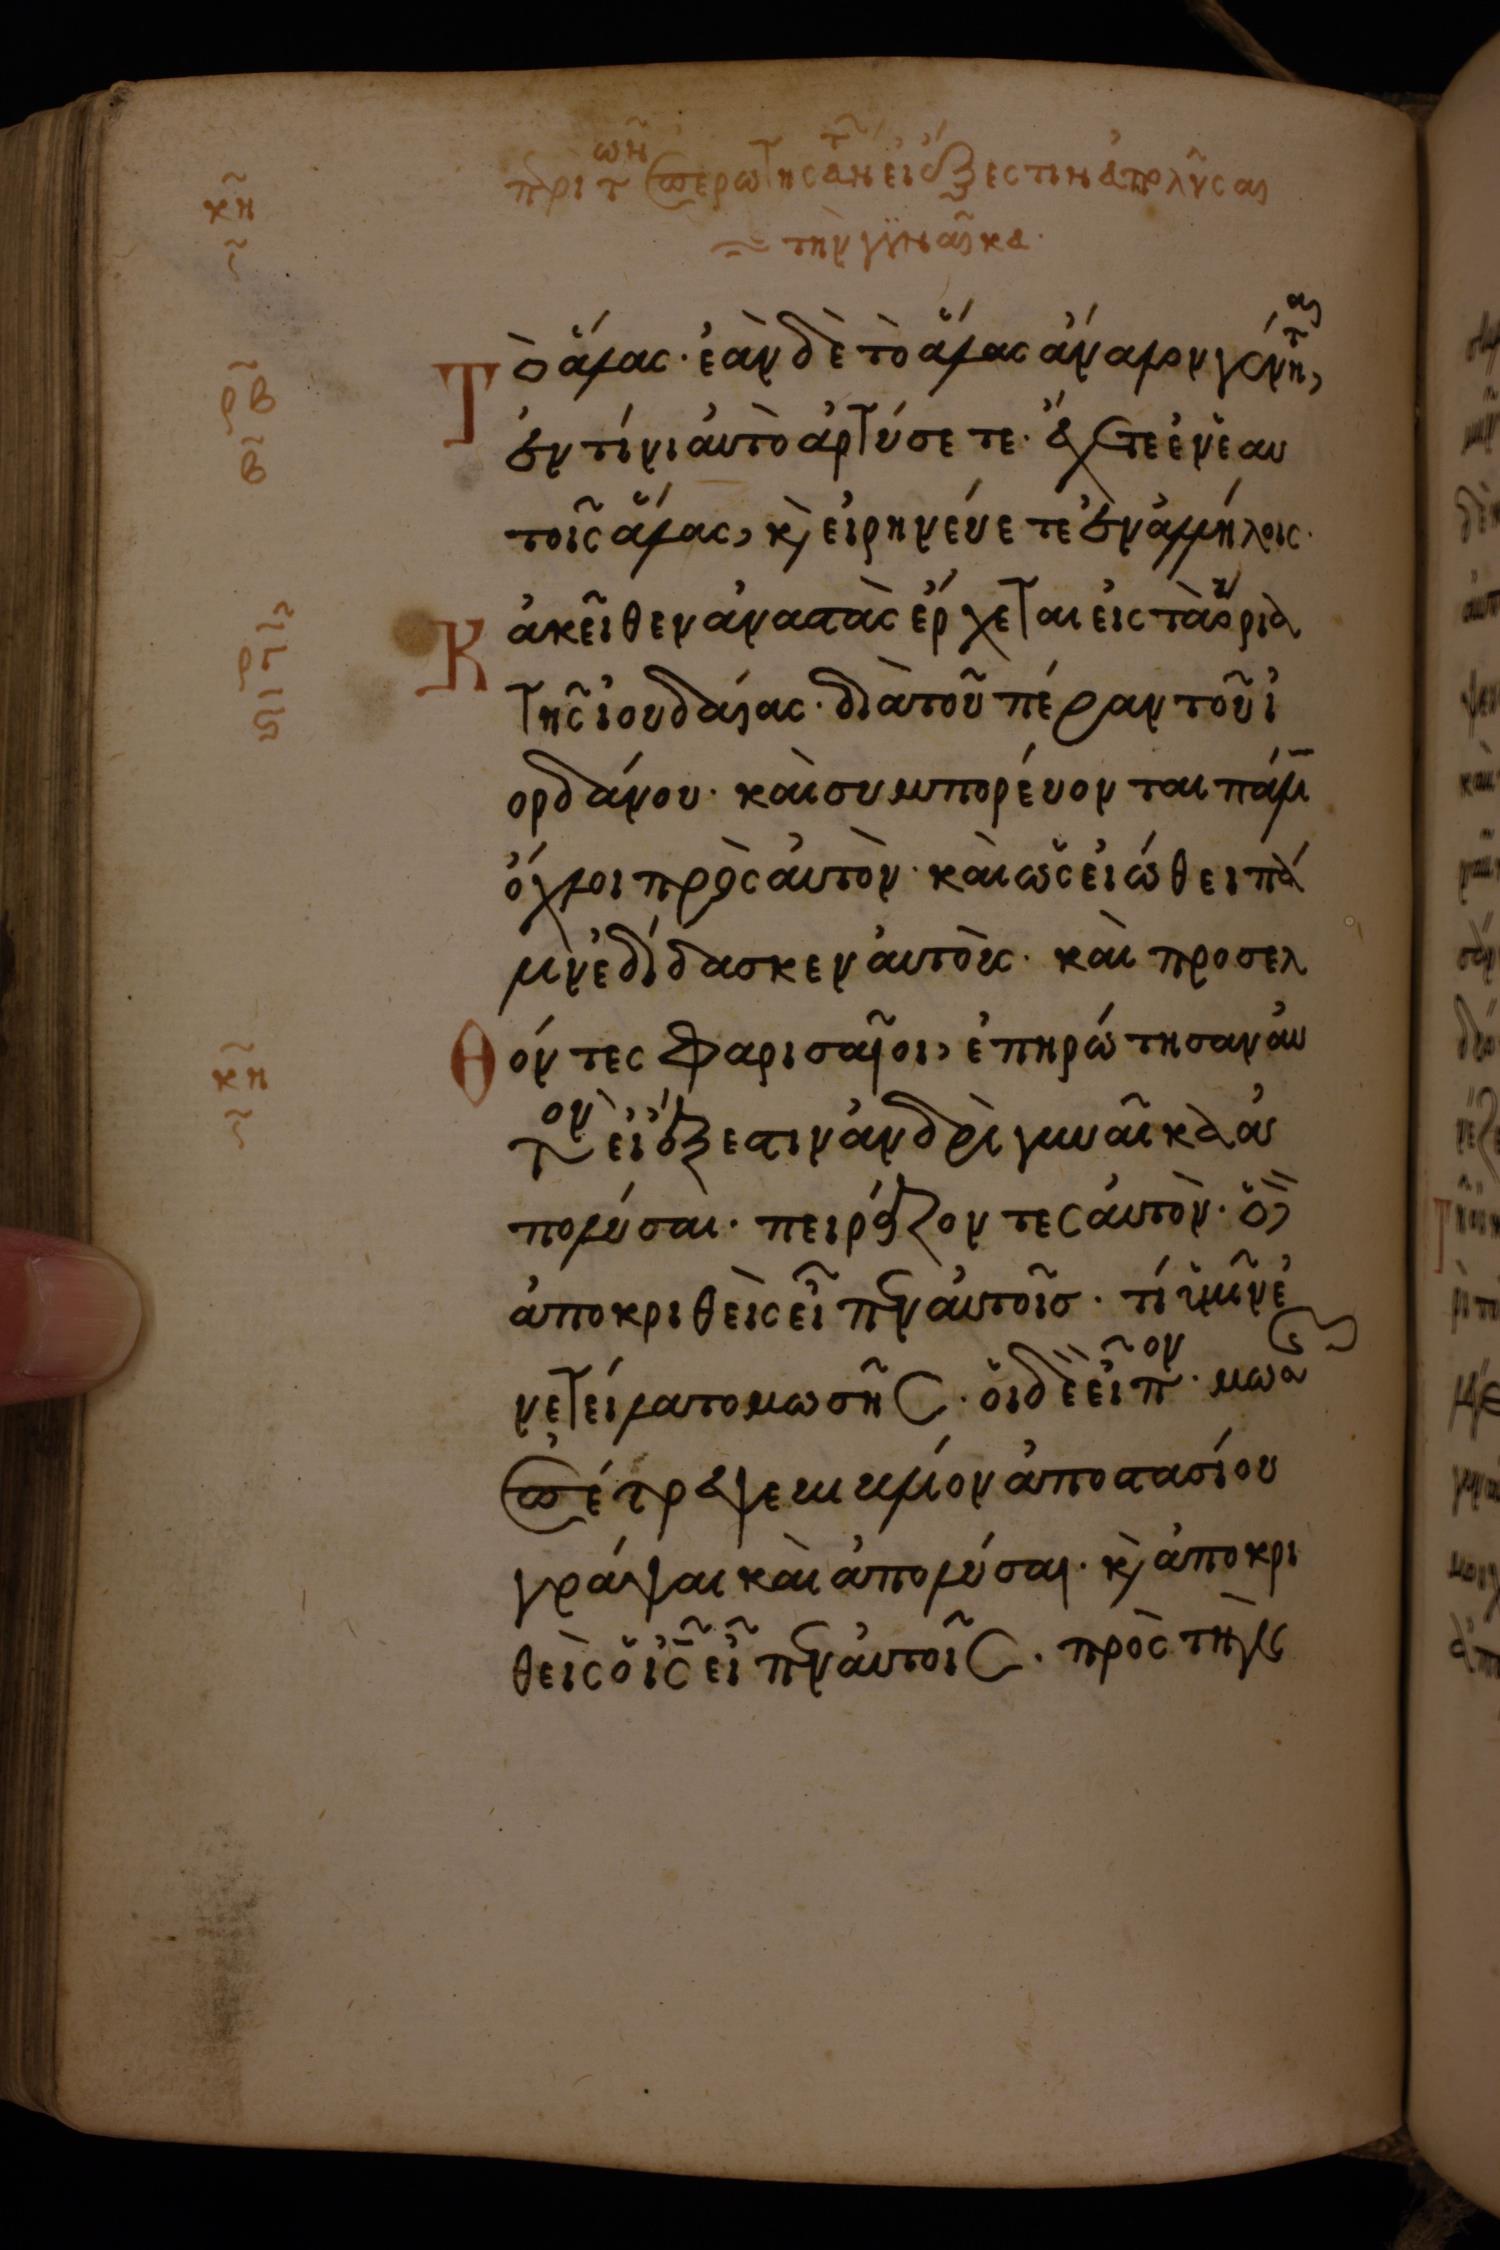 κη
περὶ τῶν ἐπερωτησάντ εἰ ἔξεστιν ἀπολῦσαι
τὴν γυναῖκα.
ρβ
β
Τὸ ἅλας· ἐὰν δὲ τὸ ἅλας ἄναλον γένηται,
ἐν τίνι αὐτὸ ἀρτύσετε· ἔχετε ἐν ἑαυ
τοῖς ἅλας, κ̀ εἰρηνεύετε ἐν ἀλλήλοις·
Κἀκεῖθεν ἀναστὰς ἔρχεται εἰς τὰ ὅρια
τῆς ἰουδαίας· διὰ τοῦ πέραν τοῦ ἰ
ορδάνου· καὶ συμπορεύονται πάλιν
ὄχλοι πρὸς αὐτὸν· καὶ ὡς εἰώθει πά
λιν ἐδίδασκεν αὐτοὺς· καὶ προσελ
κη
Θόντες φαρισαῖοι, ἐπηρώτησαν αὐ
τὸν εἰ ἔξεστιν ἀνδρὶ γυναῖκα ἀ
πολύσαι· πειράζοντες αὐτὸν· ὁ δὲ
ἀποκριθεὶς εἶπεν αὐτοῖς· τί ὑμῖν ἐ
νετείλατο μωσῆς· οἱ δὲ εἶπον· μωσῆς
ἐπέτρεψε βιβλίον ἀποστασίου
γράψαι καὶ ἀπολύσαι· κ̀ ἀποκρι
θεὶς ὁ ις εἶπεν αὐτοῖς· πρὸς τὴν